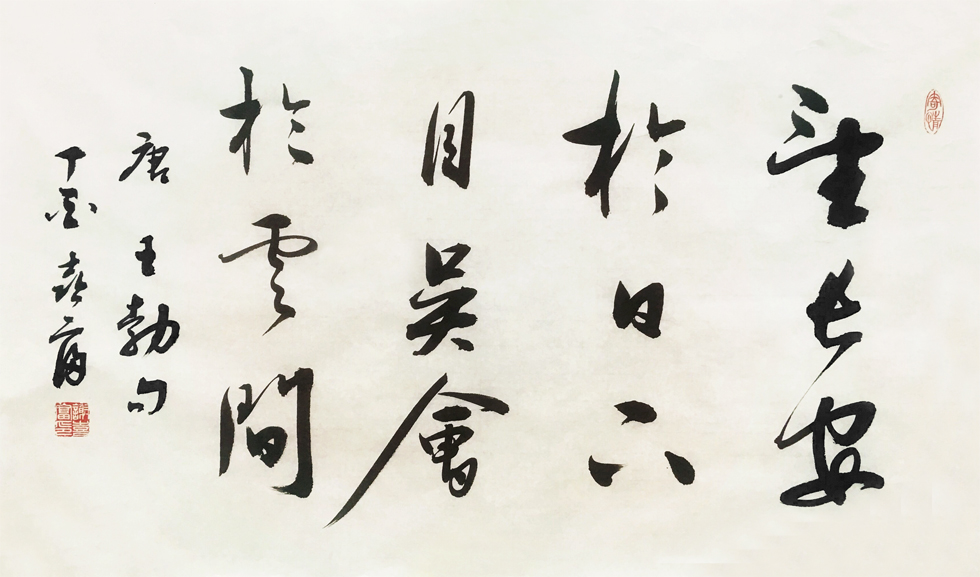 望长安
於日下
目吴會
於雲間
唐王勃句
丁酉
寄情